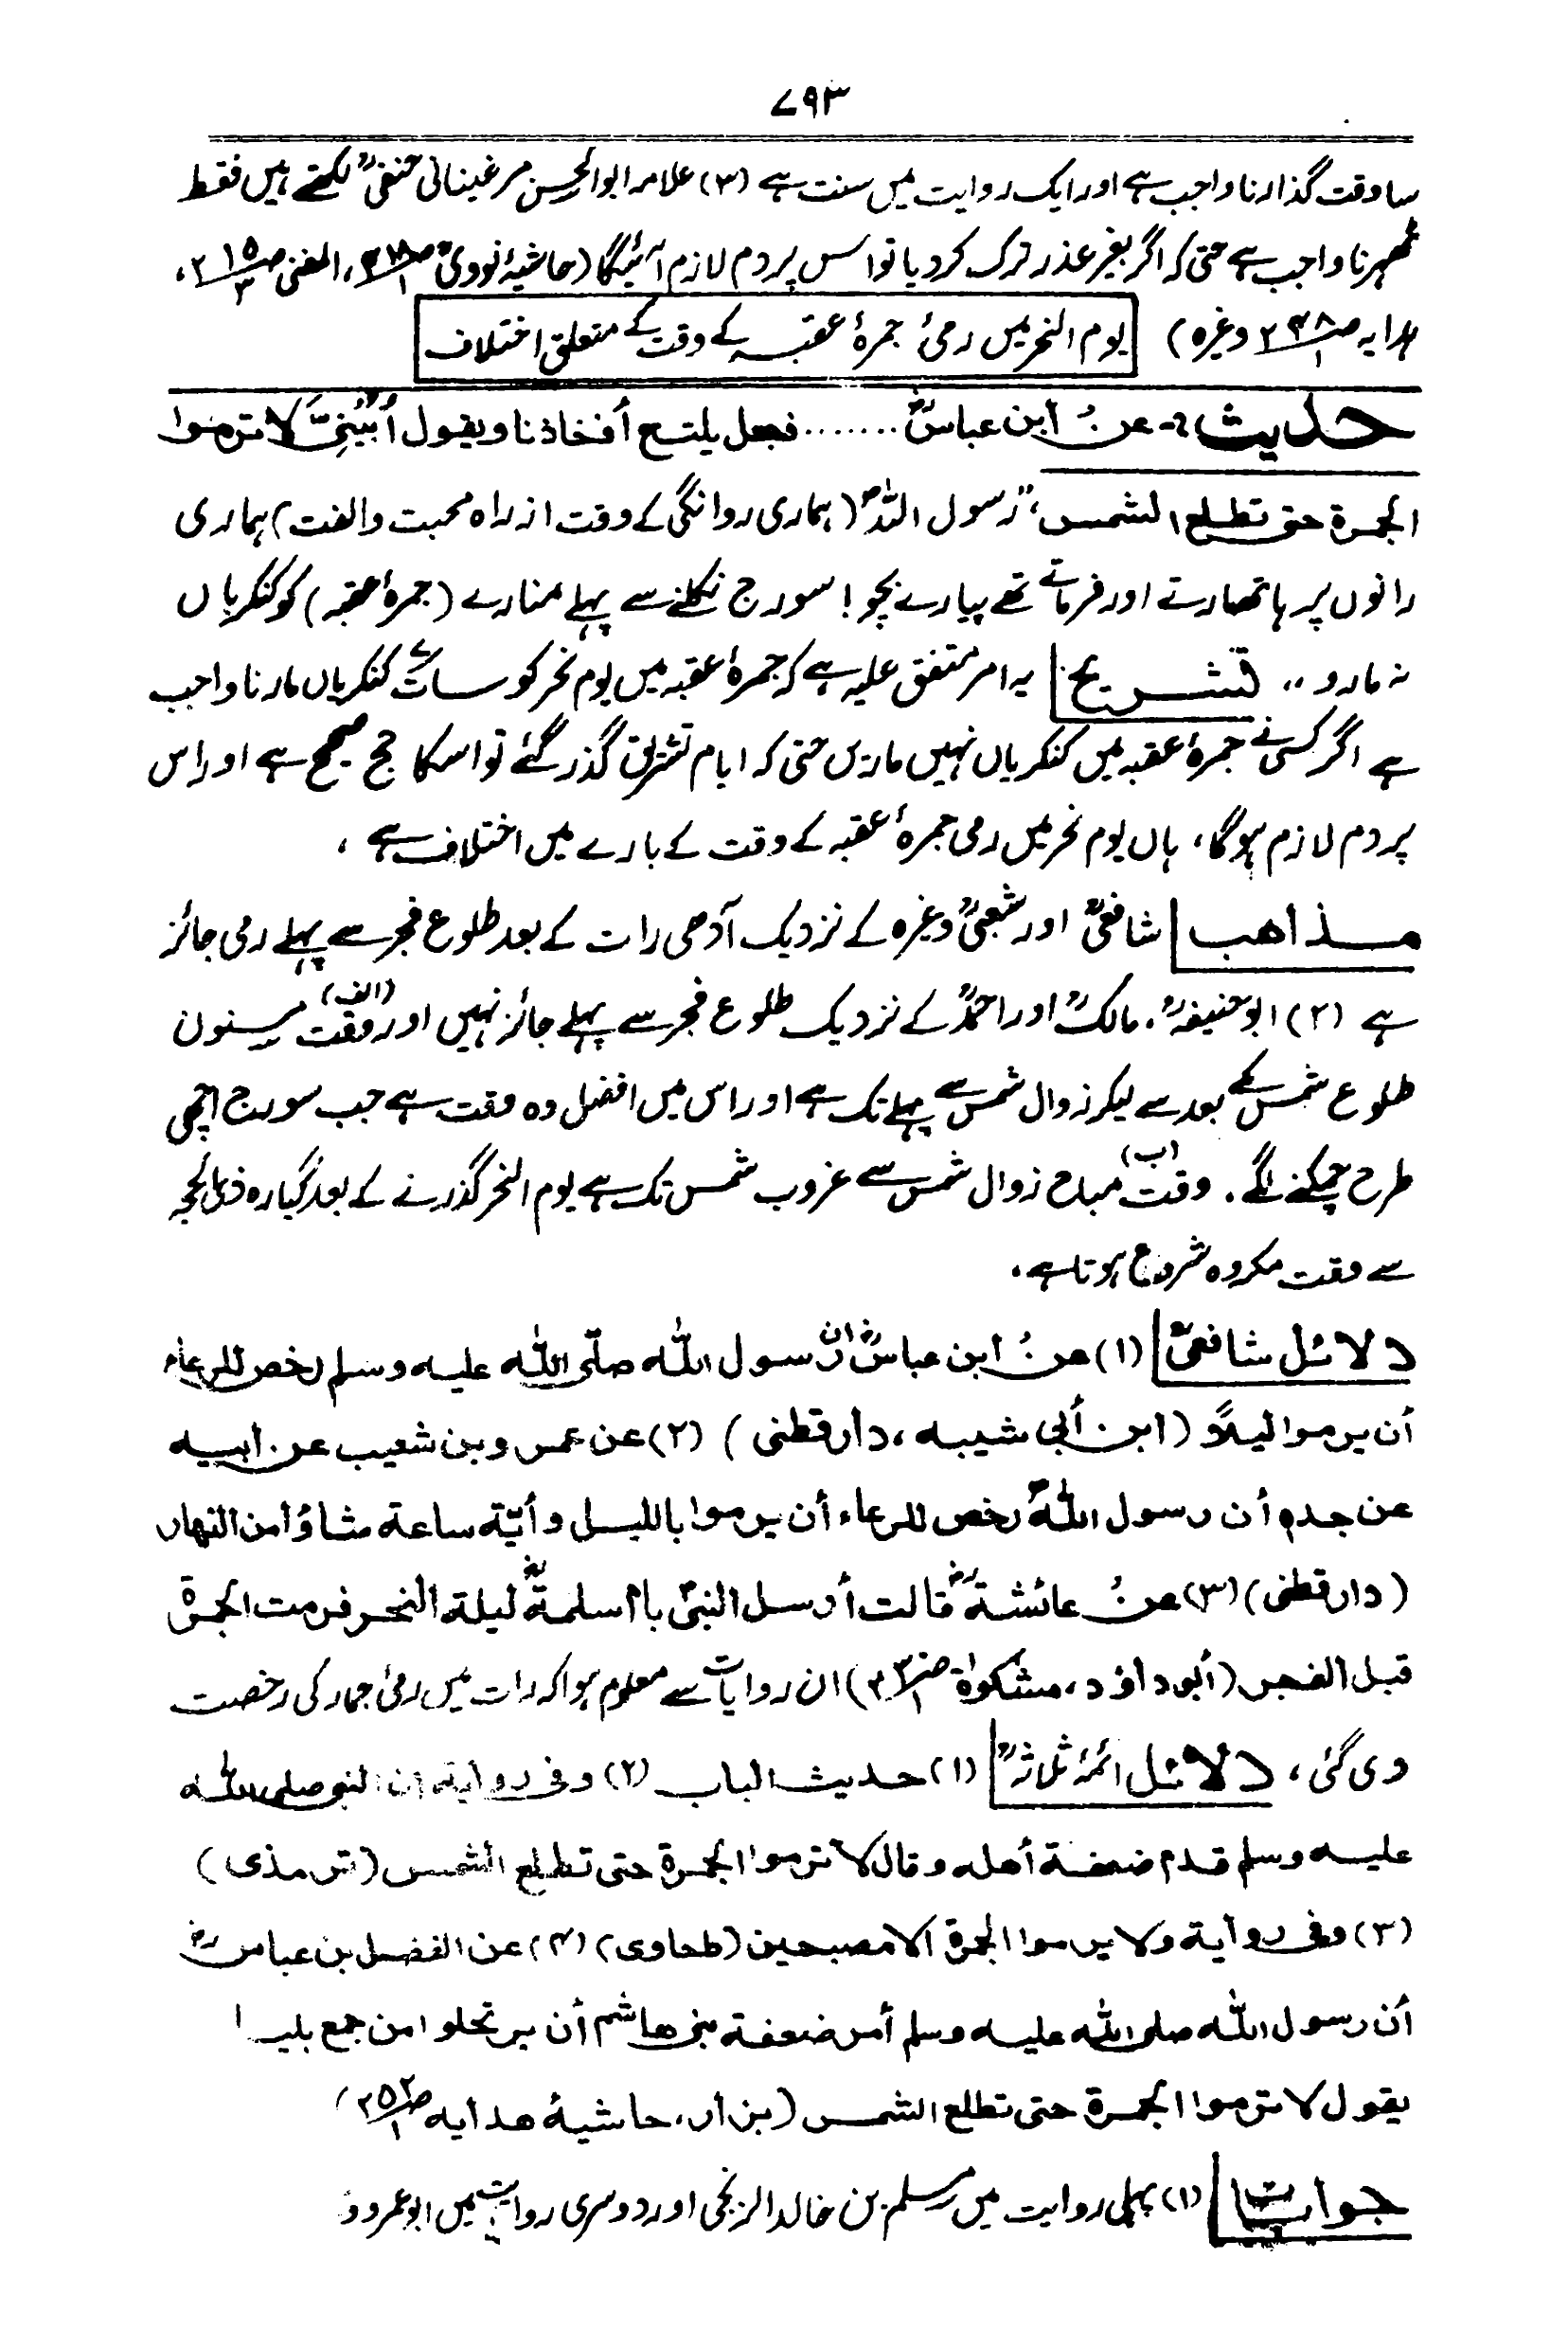 ۷۹۳
سا وقت گذارنا واجب ہے اور ایک روایت میں سنت ہے (۳) علامہ ابو الحسن مرغینانی حنفیؒ لکھتے ہیں فقط
ٹھہرنا واجب ہے حتی کہ اگر بغیر عذر ترک کردیا تو اس پر دم لازم آئیگا (حاشیۂ نوویؒ، المغنی ص۲۱۵/۳،
ہدایہ ص۲۳۸/۱ وغیرہ) یوم النحر میں رمیٔ جمرۂ عقبہ کے وقت کے متعلق اختلاف
حدیث :- عن ابن عباسؓ ....... فجعل يلتح أفخاذنا ويقول أُبَيْنِيَّ لا ترموا
الجمرة حتى تطلع الشمس، "رسول اللہؐ (ہماری روانگی کے وقت از راہ محبت والفت) ہماری
رانوں پر ہاتھ مارتے اور فرماتے تھے پیارے بچو! سورج نکلنے سے پہلے منارے (جمرۂ عقبہ) کو کنکریاں
نہ مارو،، تشریح: یہ امر متفق علیہ ہے کہ جمرۂ عقبہ میں یوم نحر کو سات کنکریاں مارنا واجب
ہے اگر کسی نے جمرۂ عقبہ میں کنکریاں نہیں ماریں حتی کہ ایام تشریق گذر گئے تو اسکا حج صحیح ہے اور اس
پر دم لازم ہوگا، ہاں یوم نحر میں رمی جمرۂ عقبہ کے وقت کے بارے میں اختلاف ہے،
مذاهب شافعیؒ اور شعبیؒ وغیرہ کے نزدیک آدھی رات کے بعد طلوع فجر سے پہلے رمی جائز
ہے (۲) ابو حنیفہؒ، مالکؒ اور احمدؒ کے نزدیک طلوع فجر سے پہلے جائز نہیں اور (الف) وقت مسنون
طلوع شمس کے بعد سے لیکر زوال شمس سے پہلے تک ہے اور اس میں افضل وہ وقت ہے جب سورج اچھی
طرح چمکنے لگے۔ (ب) وقت مباح زوال شمس سے غروب شمس تک ہے یوم النحر گذرنے کے بعد گیارہ ذی الحجہ
سے وقت مکروہ شروع ہوتا ہے،
دلائل شافعیؒ (۱) عن ابن عباسؓ ان رسول الله صلّى الله عليه وسلم رخص للرعاء
أن يرموا ليلاً (ابن أبي شيبه، دار قطنی) (۲) عن عمرو بن شعيب عن ابيه
عن جده أن رسول اللهؐ رخص للرعاء أن يرموا بالليل وأيّة ساعة شاؤا من النهار
(دار قطنی) (۳) عن عائشةؓ قالت أرسل النبیؐ بام سلمةؓ ليلة النحر فرمت الجمرة
قبل الفجر (أبو داؤد، مشکوٰة) ان روایات سے معلوم ہوا کہ رات میں رمیٔ جمار کی رخصت
دی گئی، دلائل ائمۂ ثلاثہؒ (۱) حديث الباب (۲) وفي رواية ان النبي صلى الله
عليه وسلم قدم ضعفة أهله وقال لا ترموا الجمرة حتى تطلع الشمس (ترمذی)
(۳) وفي رواية ولا يرموا الجمرة الا مصبحين (طحاوی) (۴) عن الفضل بن عباسؓ
أن رسول الله صلى الله عليه وسلم أمر ضعفة بني هاشم أن يرتحلوا من جمع بليل
يقول لا ترموا الجمرة حتى تطلع الشمس (بزار، حاشیۂ هدایه ص۲۵۲/۱)
جوابات (۱) پہلی روایت میں مسلم بن خالد الزنجی اور دوسری روایت میں ابو عمرو